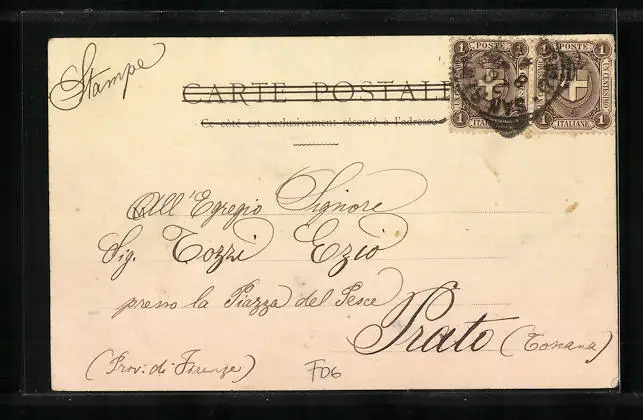 Stampe
CARTE POSTALE
Ce côté est exclusivement réservé à l'adresse
1 POSTE 1
UN CENTESIMO
1 ITALIANE 1
1 POSTE 1
UN CENTESIMO
1 ITALIANE 1
All'Egregio Signore
Sig. Tozzi Ezio
presso la Piazza del Pesce
Prato (Toscana)
(Prov: di Firenze)
F06